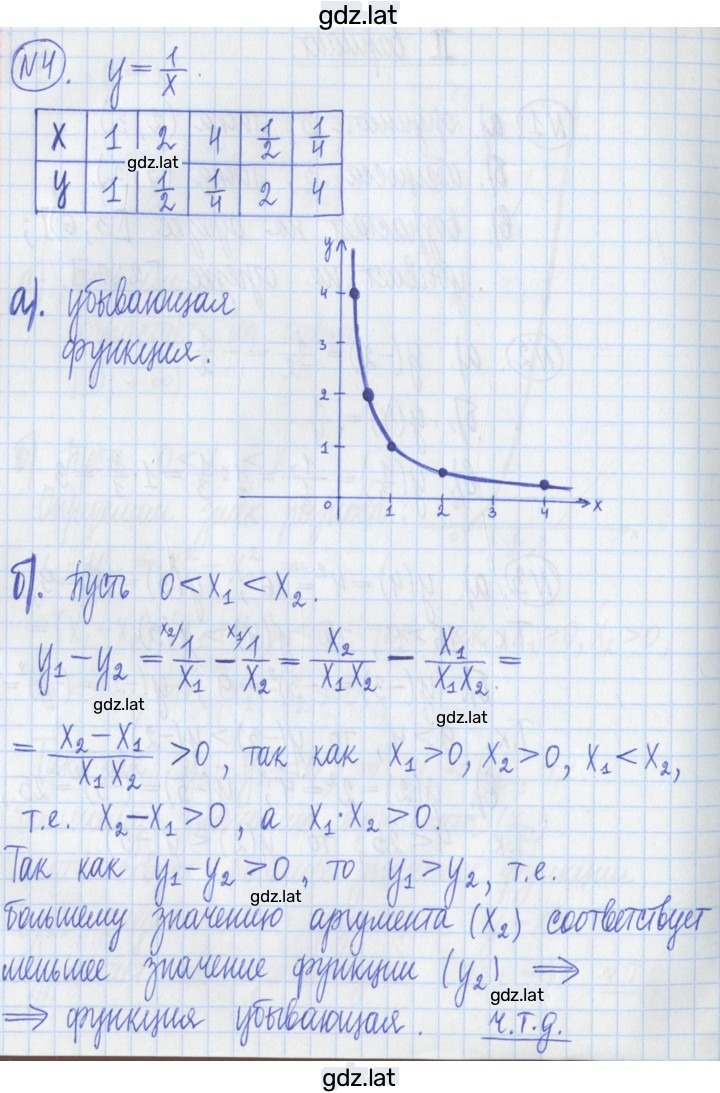 gdz.lat
№4. y = 1/x
x 1 2 4 1/2 1/4
gdz.lat
y 1 1/2 1/4 2 4
y
4
3
2
1
0 1 2 3 4 x
а). убывающая
функция.
б). Пусть 0 < x₁ < x₂.
y₁ − y₂ = ˣ²⁾1/x₁ − ˣ¹⁾1/x₂ = x₂/x₁x₂ − x₁/x₁x₂ =
gdz.lat
gdz.lat
= x₂ − x₁/x₁x₂ > 0, так как x₁ > 0, x₂ > 0, x₁ < x₂,
т.е. x₂ − x₁ > 0, а x₁·x₂ > 0.
Так как y₁ − y₂ > 0, то y₁ > y₂, т.е.
gdz.lat
большему значению аргумента (x₂) соответствует
меньшее значение функции (y₂) ⟹
gdz.lat
⟹ функция убывающая. ч.т.д.
gdz.lat